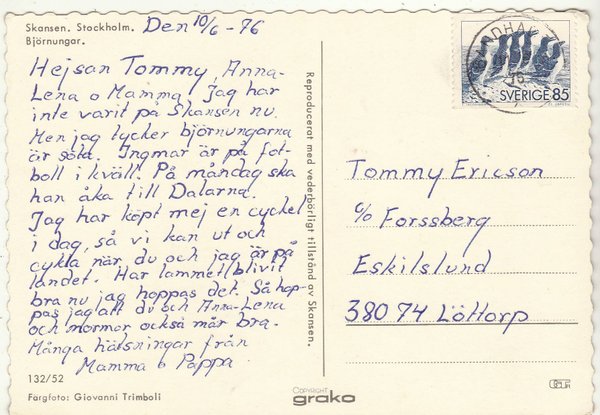 Skansen. Stockholm. Den 10/6 - 76
Björnungar.
Hejsan Tommy, Anna-
Lena o Mamma. Jag har
inte varit på Skansen nu.
Men jag tycker björnungarna
är söta. Ingmar är på fot-
boll i kväll. På måndag ska
han åka till Dalarna.
Jag har köpt mej en cyckel
i dag, så vi kan ut och
cykla när du och jag är på
landet. Har lammet blivit
bra nu jag hoppas det. Så hop-
pas jag att du och Anna-Lena
och mormor också mår bra.
Många hälsningar från
Mamma o Pappa
132/52
Färgfoto: Giovanni Trimboli
Reproducerat med vederbörligt tillstånd av Skansen.
COPYRIGHT
grako
SVERIGE 85
76
Tommy Ericson
c/o Forssberg
Eskilslund
380 74 Löttorp